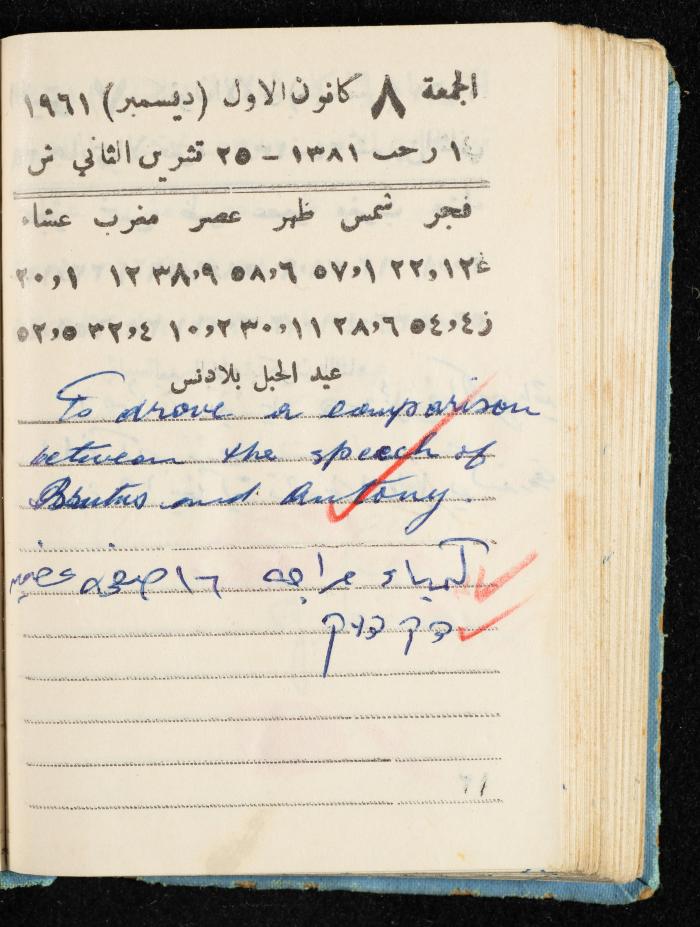 الجمعة ٨ كانون الاول (ديسمبر) ١٩٦١
١ رجب ١٣٨١ – ٢٥ تشرين الثاني ش
فجر شمس ظهر عصر مغرب عشاء
غ ١٢,٢٢ ١,٥٧ ٦,٥٨ ٩,٣٨ ١٢ ١,٣٠
ز ٤,٥٤ ٦,٢٨ ١١,٣٠ ٢,١٠ ٤,٣٢ ٥,٥٢
عيد الحبل بلادنس
To drove a comparison
between the speech of
Brutus and Antony.
كيمياء مراجعة ١٦ صفحة
דקדוק